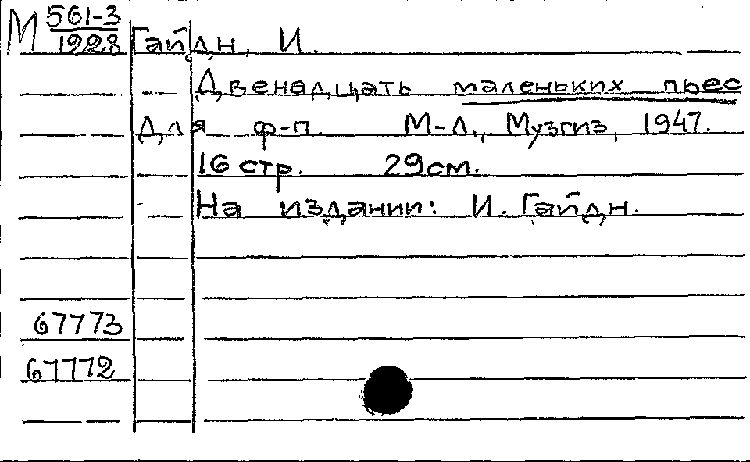 М 561-3
1928 Гайдн, И.
Двенадцать маленьких пьес
для ф-п. М-Л., Музгиз, 1947.
16 стр. 29см.
На издании: И. Гайдн.
67773
67772